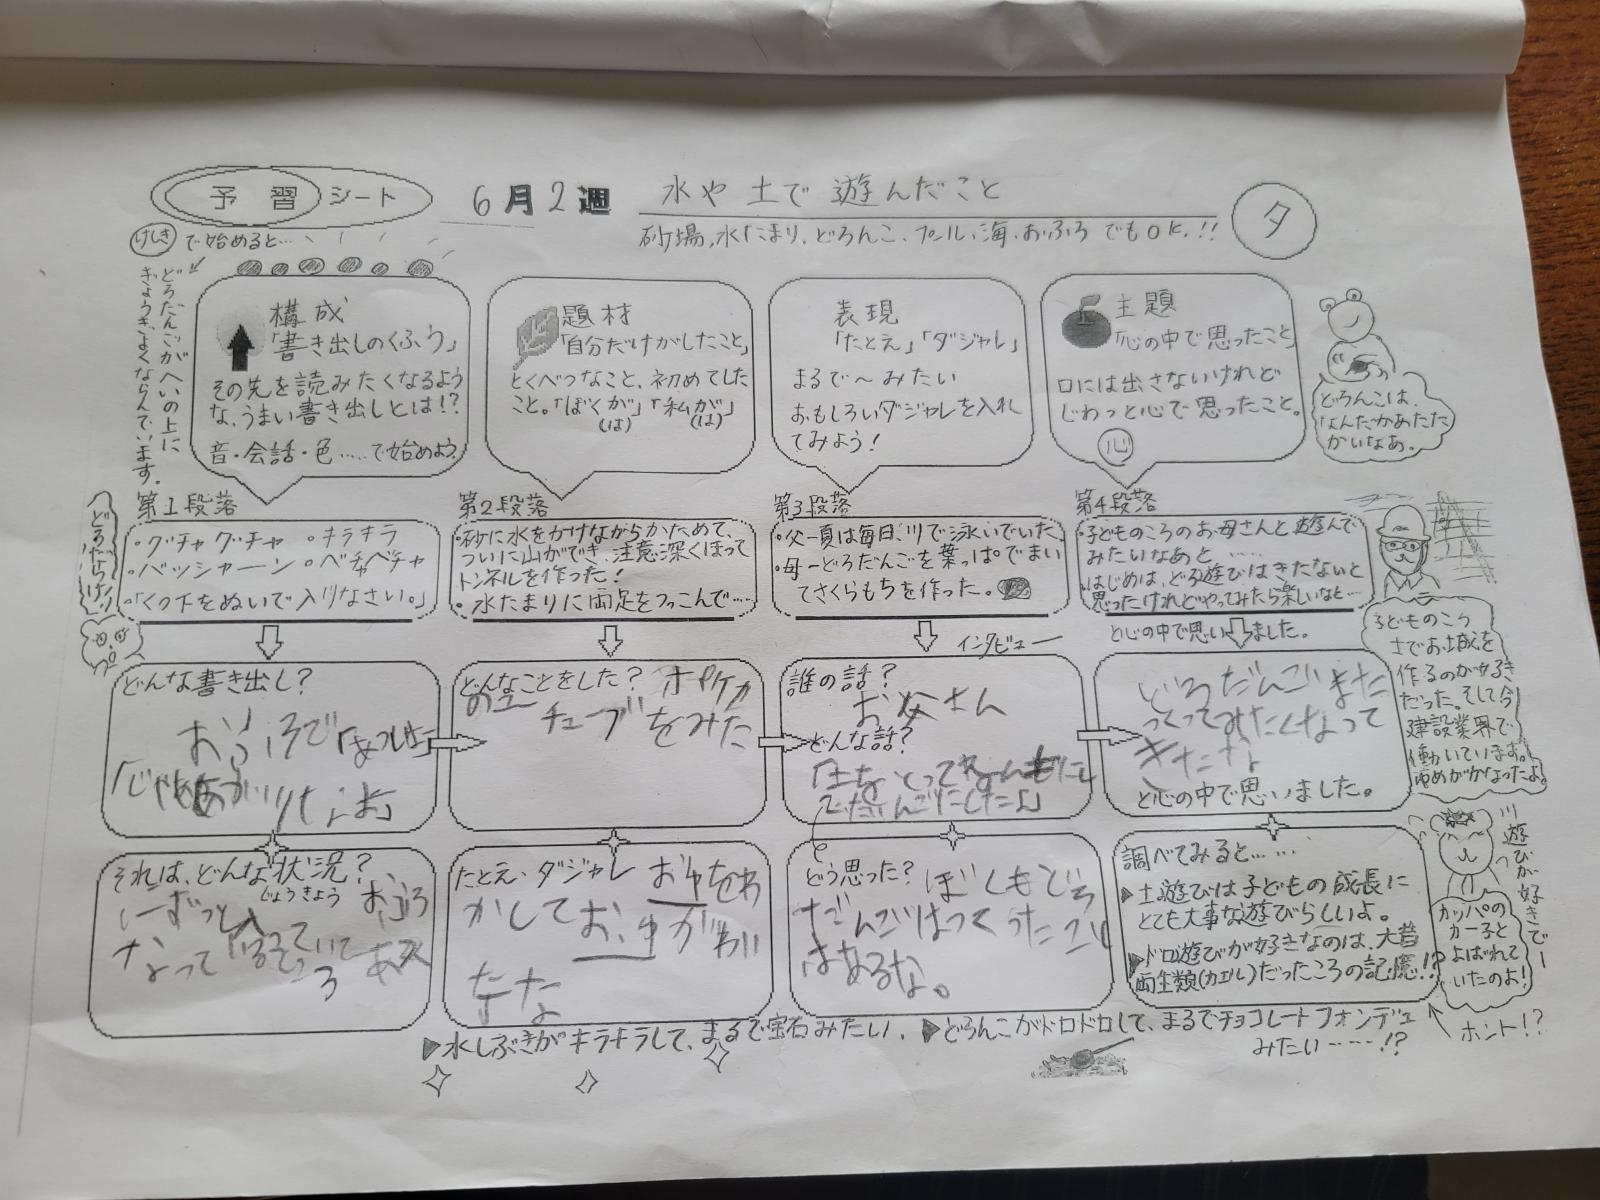 予習シート
6月2週
水や土で遊んだこと
砂場、水たまり、どろんこ、プール、海、おふろでもOK!!
タ
けしきで始めると…
どろだんごがへいの上に
ぎょうぎよくならんでいます。
構成
「書き出しのくふう」
その先を読みたくなるよう
な、うまい書き出しとは!?
音・会話・色……で始めよう。
題材
「自分だけがしたこと」
とくべつなこと、初めてした
こと。「ぼくが」「私が」
(は) (は)
表現
「たとえ」「ダジャレ」
まるで〜みたい
おもしろいダジャレを入れ
てみよう!
主題
「心の中で思ったこと」
口には出さないけれど
じわっと心で思ったこと。
心
どろんこは、
なんだかあたた
かいなあ。
第1段落
・グチャグチャ ・キラキラ
・バッシャーン ・ベチャベチャ
・「くつ下をぬいで入りなさい。」
第2段落
・砂に水をかけながらかためて、
ついに山ができ、注意深くほって
トンネルを作った!
・水たまりに両足をつっこんで……
第3段落
・父ー夏は毎日川で泳いでいた。
・母ーどろだんごを葉っぱでまい
てさくらもちを作った。
インタビュー
第4段落
・子どものころのお母さんと遊んで
みたいなあと……
はじめは、どろ遊びはきたないと
思ったけれどやってみたら楽しいなと…
と心の中で思いました。
子どものころ
土でお城を
作るのが好き
だった。そして今
建設業界で
働いています。
ゆめがかなったよ。
どんな書き出し?
おふろで
どんなことをした?
チューブをみた
誰の話?
お父さん
どんな話?
どろだんごまた
つくってみたくなって
きたな
と心の中で思いました。
それは、どんな状況?
じょうきょう
たとえ、ダジャレ おゆをわ
かして
たな
どう思った? ぼくもどろ
だんごはつくったこと
はあるな。
調べてみると……
▶土遊びは子どもの成長に
とても大事な遊びらしいよ。
▶ドロ遊びが好きなのは、大昔
両生類(カエル)だったころの記憶!?
ホント!?
川遊びが好きでー
カッパの
カー子と
よばれて
いたのよ!
▶水しぶきがキラキラして、まるで宝石みたい。 ▶どろんこがドロドロして、まるでチョコレートフォンデュ
みたい……!?